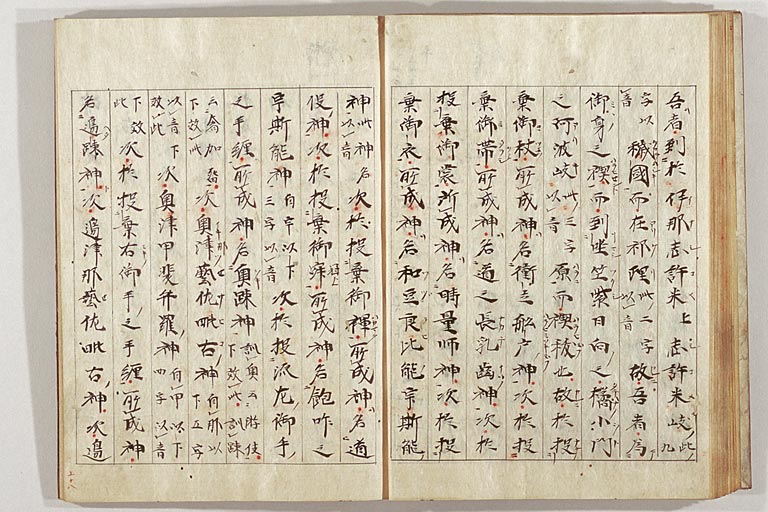 吾者到於伊那志許米上志許米岐此九
字以音穢國而在祁理此二字以音故吾者為
御身之禊而到坐竺紫日向之橘小門
之阿波岐此三字以音原而禊祓也故於投
棄御杖所成神名衝立船戸神次於投
棄御帯所成神名道之長乳齒神次於
投棄御裳所成神名時量師神次於投
棄御衣所成神名和豆良比能宇斯能
神此神名以音次於投棄御褌所成神名道
俣神次於投棄御所成神名飽咋之
宇斯能神自宇以下三字以音次於投棄左御手
之手纒所成神名奥疎神訓奥云於伎下效此訓疎
云奢加留下效此次奥津那藝佐毗古神自那以下五字
以音下效此次奥津甲斐弁羅神自甲以下四字以音
下效此次於投棄右御手之手纒所成神
名邊疎神次邊津那藝佐毗古神次邊